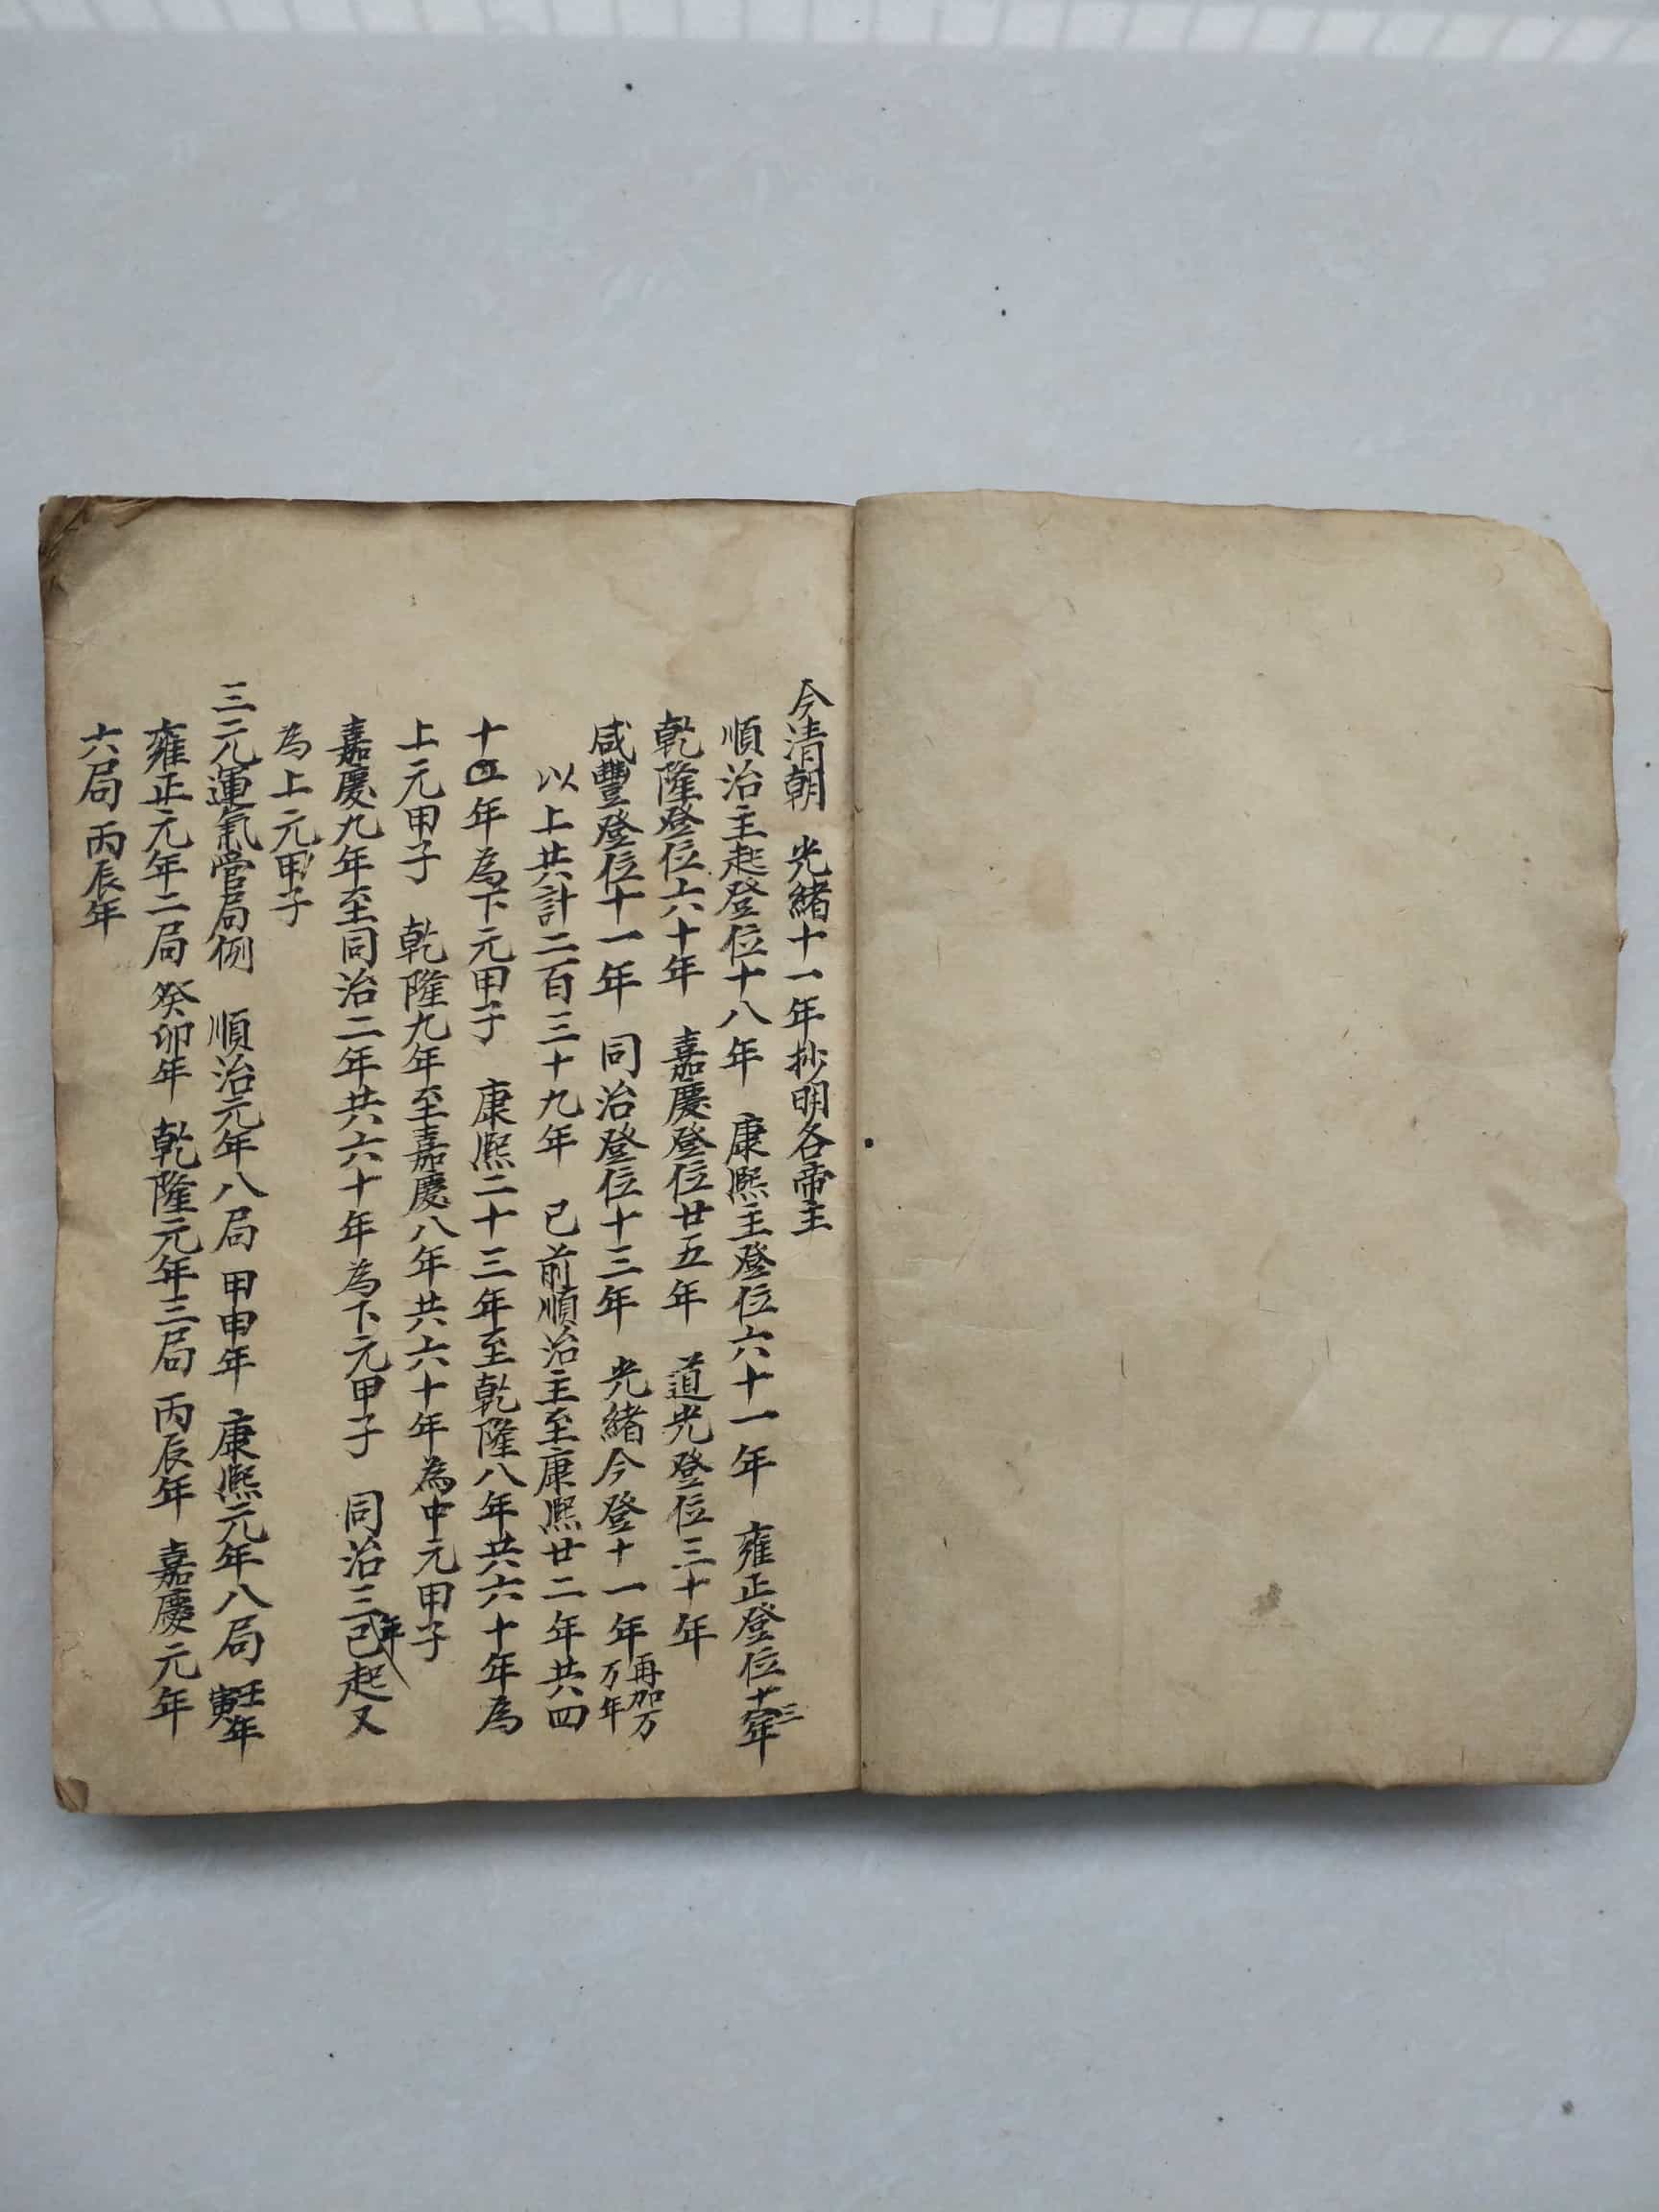 今清朝 光緒十一年抄明各帝主
順治主起登位十八年 康熙主登位六十一年 雍正登位十三年
乾隆登位六十年 嘉慶登位廿五年 道光登位三十年
咸豐登位十一年 同治登位十三年 光緒今登十一年再加万万年
以上共計二百三十九年 已前順治主至康熙廿二年共四
十年為下元甲子 康熙二十三年至乾隆八年共六十年為
上元甲子 乾隆九年至嘉慶八年共六十年為中元甲子
嘉慶九年至同治二年共六十年為下元甲子 同治三年起又
為上元甲子
三元運氣管局例 順治元年八局 甲申年 康熙元年八局 壬寅年
雍正元年二局 癸卯年 乾隆元年三局 丙辰年 嘉慶元年
六局 丙辰年